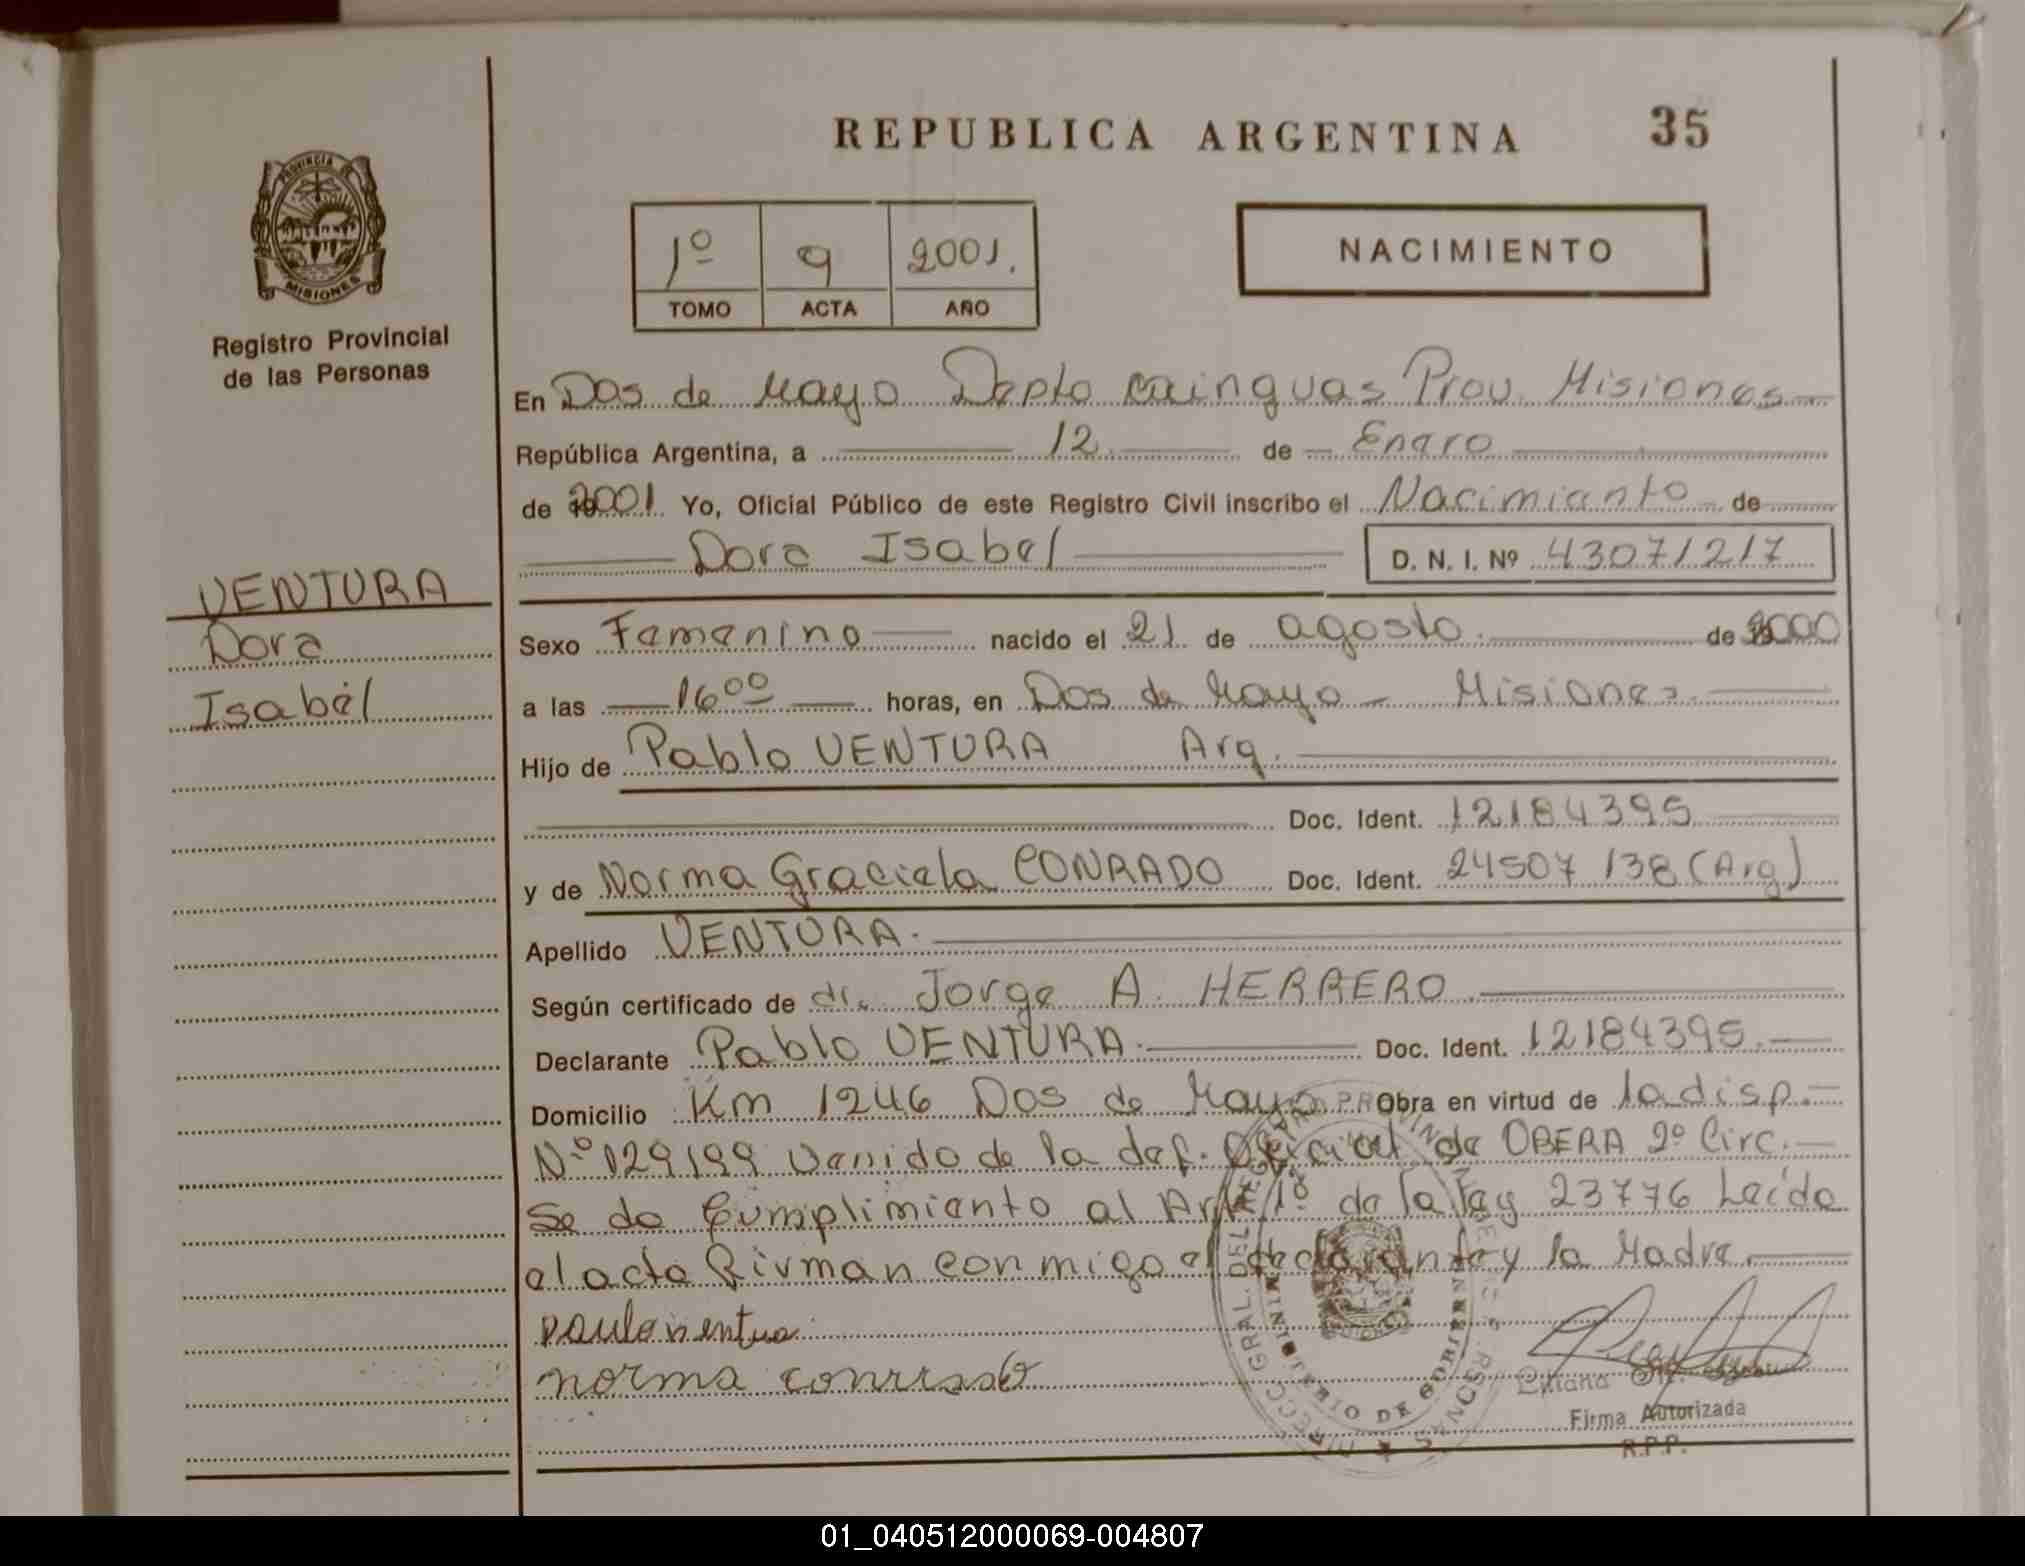 REPUBLICA ARGENTINA 35
PROVINCIA DE MISIONES
Registro Provincial
de las Personas
1º 9 2001.
TOMO ACTA AÑO
NACIMIENTO
En Dos de Mayo Depto cainguas Prov. Misiones
República Argentina, a 12 de Enero
de 2001 Yo, Oficial Público de este Registro Civil inscribo el Nacimiento de
Dora Isabel D. N. I. Nº 43071217
VENTURA
Dora
Isabel
Sexo Femenino nacido el 21 de agosto de 2000
a las 16 00 horas, en Dos de Mayo - Misiones
Hijo de Pablo VENTURA Arg.
Doc. Ident. 12184395
y de Norma Graciela CONRADO Doc. Ident. 24507138 (Arg)
Apellido VENTURA.
Según certificado de dr. Jorge A. HERRERO
Declarante Pablo VENTURA. Doc. Ident. 12184395.
Domicilio Km 1246 Dos de Mayo Obra en virtud de la disp.
Nº 129199 Venido de la def. Oficial de OBERA 2º Circ.
Se da Cumplimiento al Art 1º de la Ley 23776 Leída
el acta Firman conmigo el declarante y la Madre.
norma
Firma Autorizada
R.P.P.
01_040512000069-004807